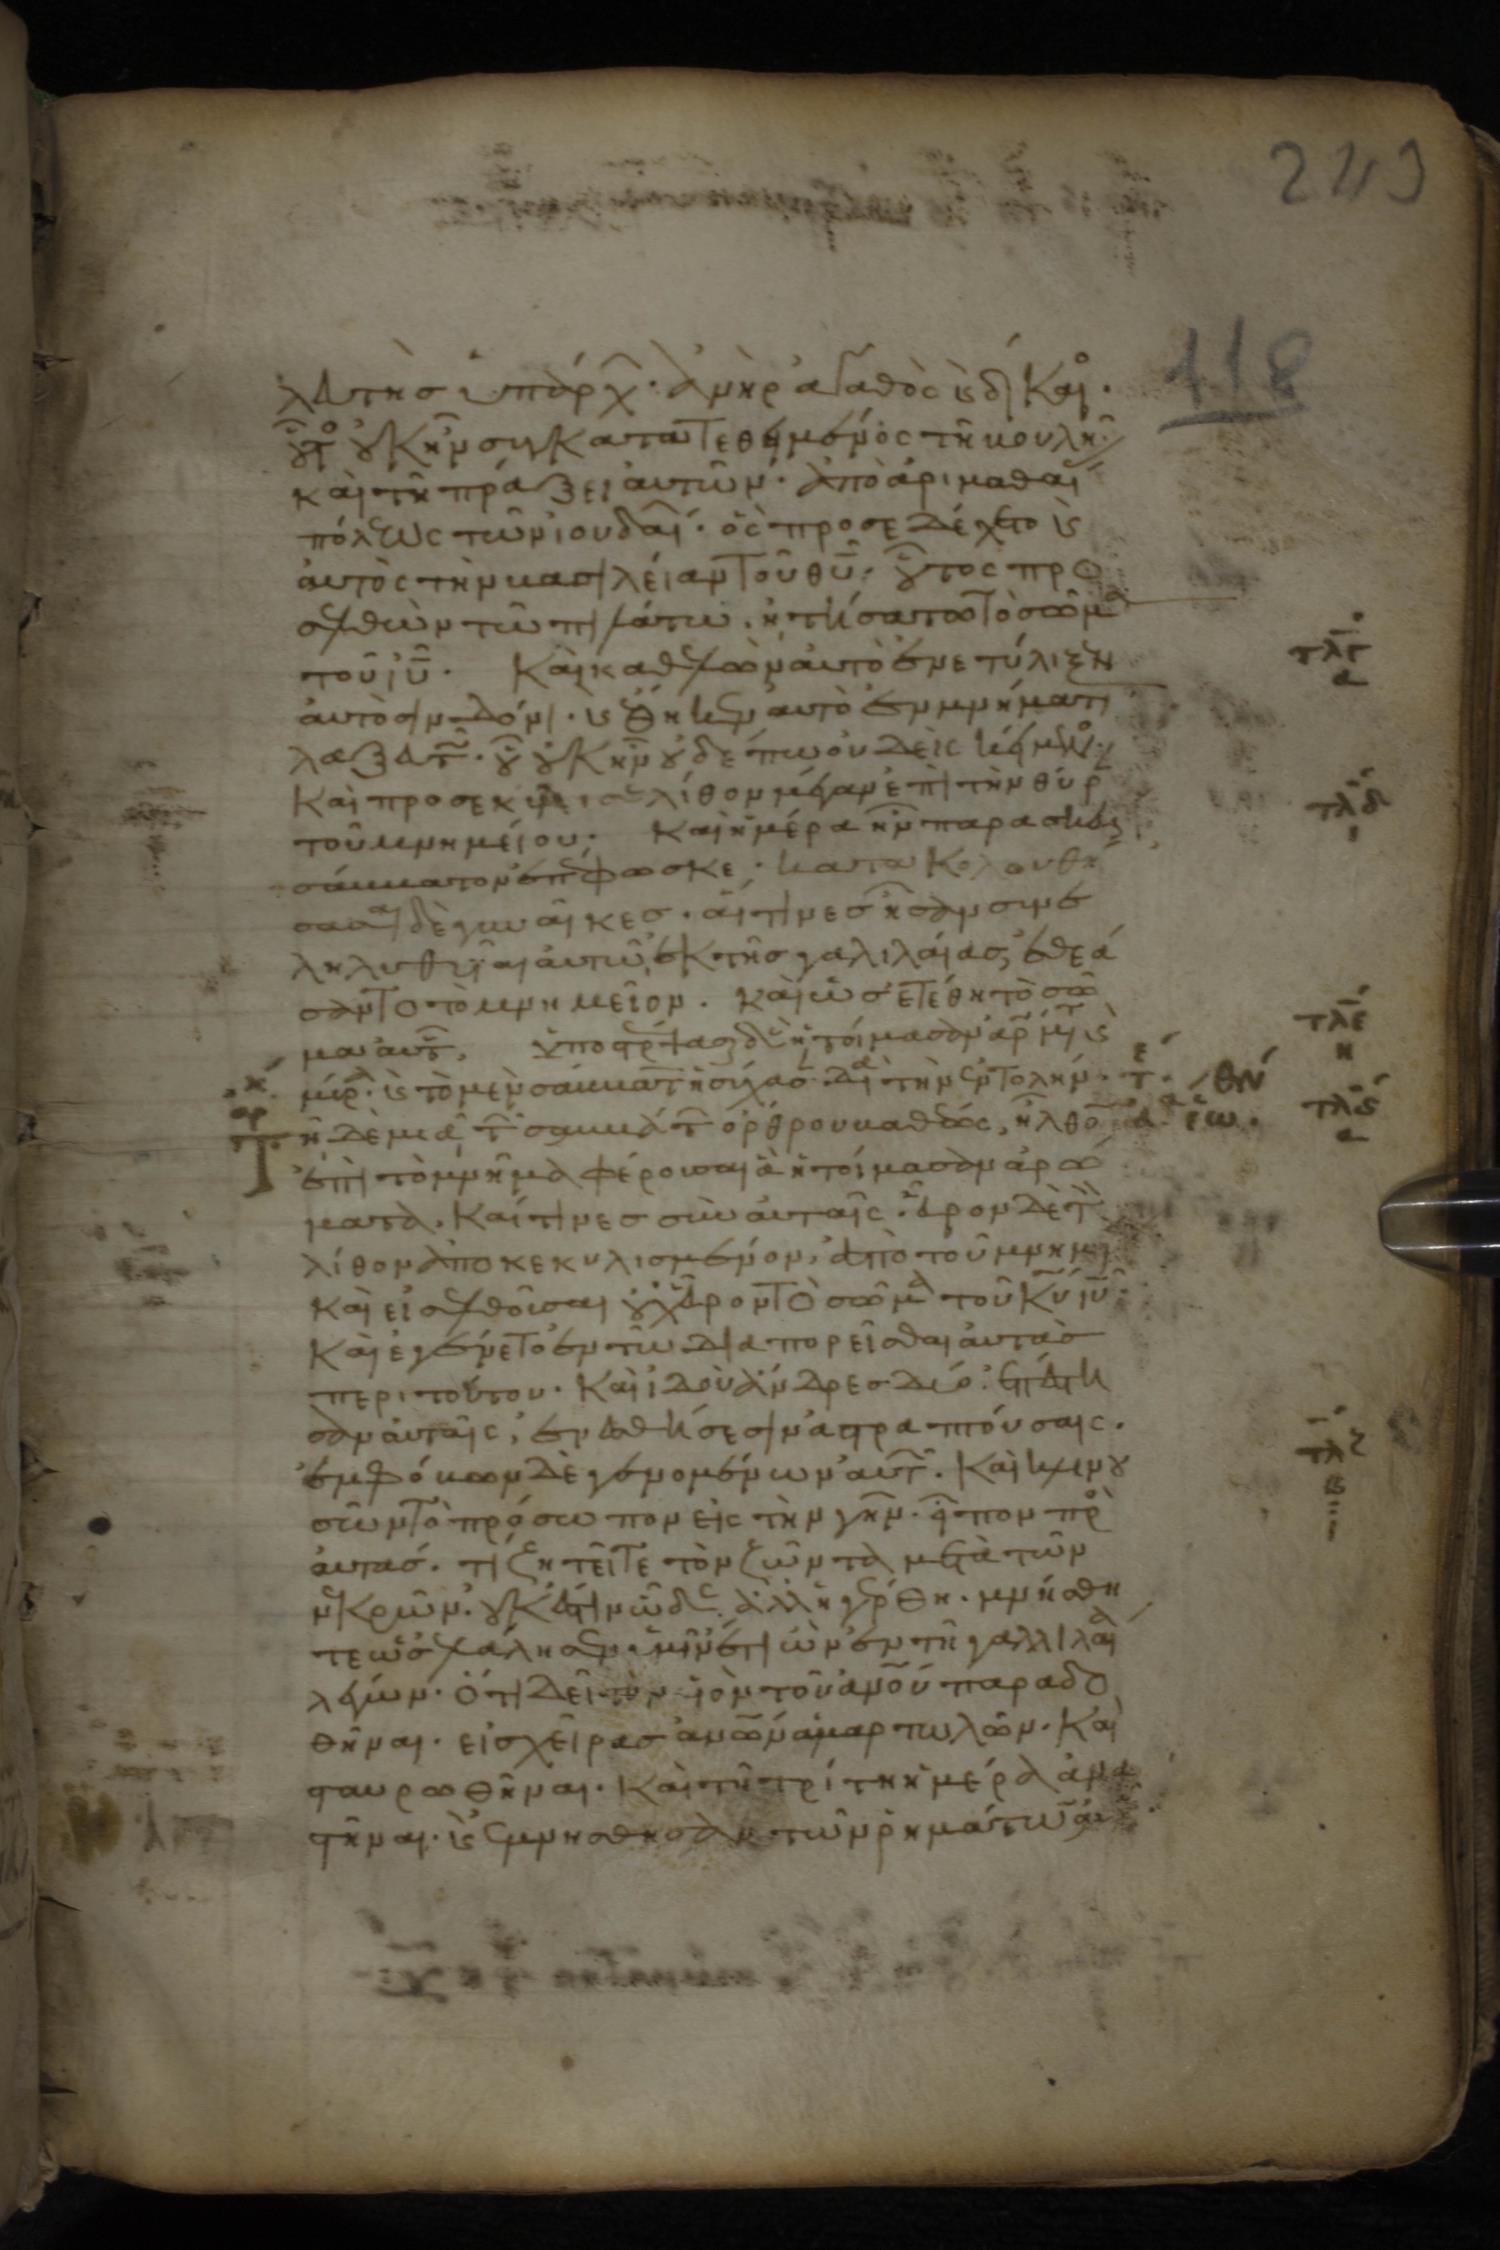 243
118
λευτὴς ὑπάρχ̑· ἀνὴρ ἀγαθὸς ϗ δίκαι̊·
οὗτο οὐκ ἦν συγκατατεθημένος τῆ βουλῆ·
καὶ τῆ πράξει αὐτῶν· ἀπὸ ἀριμαθαί
πόλεως τῶν ἰουδαί· ὃς προσεδέχετο ϗ
αὐτὸς τὴν βασιλείαν τοῦ θυ̅· οὗτος προ
σελθὼν τῶ πιλάτω· ἠτήσατο τὸ σῶμα
τοῦ ιυ̅· Καὶ καθελὼν αὐτὸ ἐνετύλιξεν
αὐτὸ σινδόνι· ϗ ἔθηκεν αὐτὸ ἐν μνήματι
λαξευτ· οὗ οὐκ ἦν οὐδέπω οὐδεὶς κείμενο·
Καὶ προσεκύλισε λίθον μέγαν ἐπὶ τὴν θύρ
τοῦ μνημείου· Καὶ ἡμέρα ἦν παρασκευ
σάββατον ἐπέφωσκε· κατακολουθή
σασαι δὲ γυναῖκες· αἵτινες ἦσαν συνε
ληλυθυῖαι αὐτῶ ἐκ τῆς γαλιλαίας ἐθεά
σαντο τὸ μνημεῖον· καὶ ὡς ἐτέθη τὸ σῶ
μα αὐτ· ὑποστρέψασ δὲ ἡτοίμασαν ἀρώματ ϗ
μύρ· ϗ τὸ μὲν σάββατ ἡσύχασ· διὰ τὴν ἐντολήν·
Τῆ δὲ μιᾶ τ σαββάτ ὄρθρου βαθέος, ἦλθο
ἐπὶ τὸ μνῆμα φέρουσαι ἃ ἡτοίμασαν ἀρώ
ματα· Καί τινες σὺν αὐταῖς· εὗρον δὲ τὸ
λίθον ἀποκεκυλισμένον, ἀπὸ τοῦ μνημεί
Καὶ εἰσελθοῦσαι οὐχ εὗρον τὸ σῶμα τοῦ κυ̅ ιυ̅·
Καὶ ἐγένετο ἐν τῶ διαπορεῖσθαι αὐτὰς
περι τούτου· Καὶ ἰδοὺ ἄνδρες δύο· ἐπέστη
σαν αὐταῖς, ἐν ἐσθήσεσιν ἀστραπτούσαις·
ἐμφόβων δὲ γενομένων αὐτ· Καὶ κλινου
σῶν τὸ πρόσωπον εἰς τὴν γῆν· εἶπον πρὸ
αὐτάς· τί ζητεῖτε τὸν ζῶντα μετὰ τῶν
νεκρῶν· οὐκ ἔστιν ὧδε ἀλλ' ἠγέρθη· μνήσθη
τε ὡς ἐλάλησεν ὑμῖν ἔτι ὢν ἐν τῆ γαλλιλαία
λέγων· ὅτι δεῖ τὸν υἱὸν τοῦ ἀνου̅ παραδο
θῆναι· εἰς χεῖρας ἀνω̅ν ἁμαρτωλῶν· Καὶ
σταυρωθῆναι· Καὶ τῆ τρίτη ἡμέρα ἀνα
στῆναι· ϗ ἐμνήσθησαν τῶν ῥημάτων αὐ
τλγ
α
τλδ
ι
τλε
η
τλς
α
τλζ
β